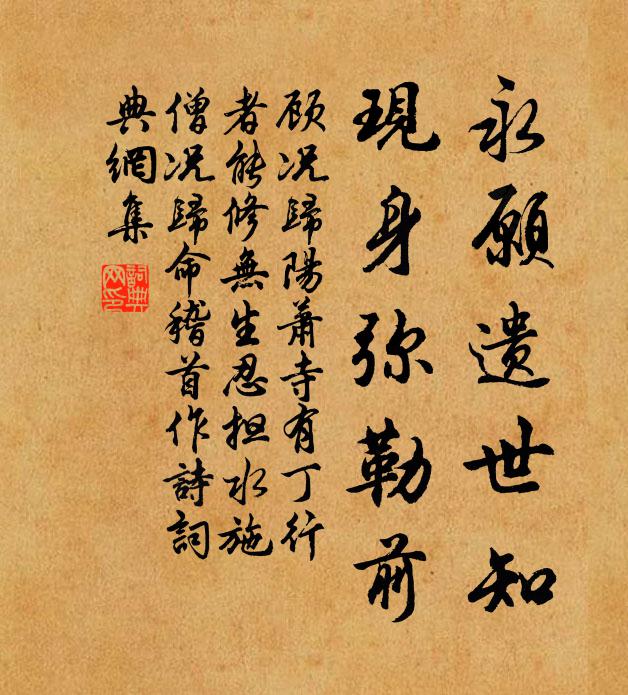 永願遺世知
現身弥勒前
顾况歸陽蕭寺有丁行
者能修無生忍担水施
僧况歸命稽首作詩詞
典網集
詞典
网印